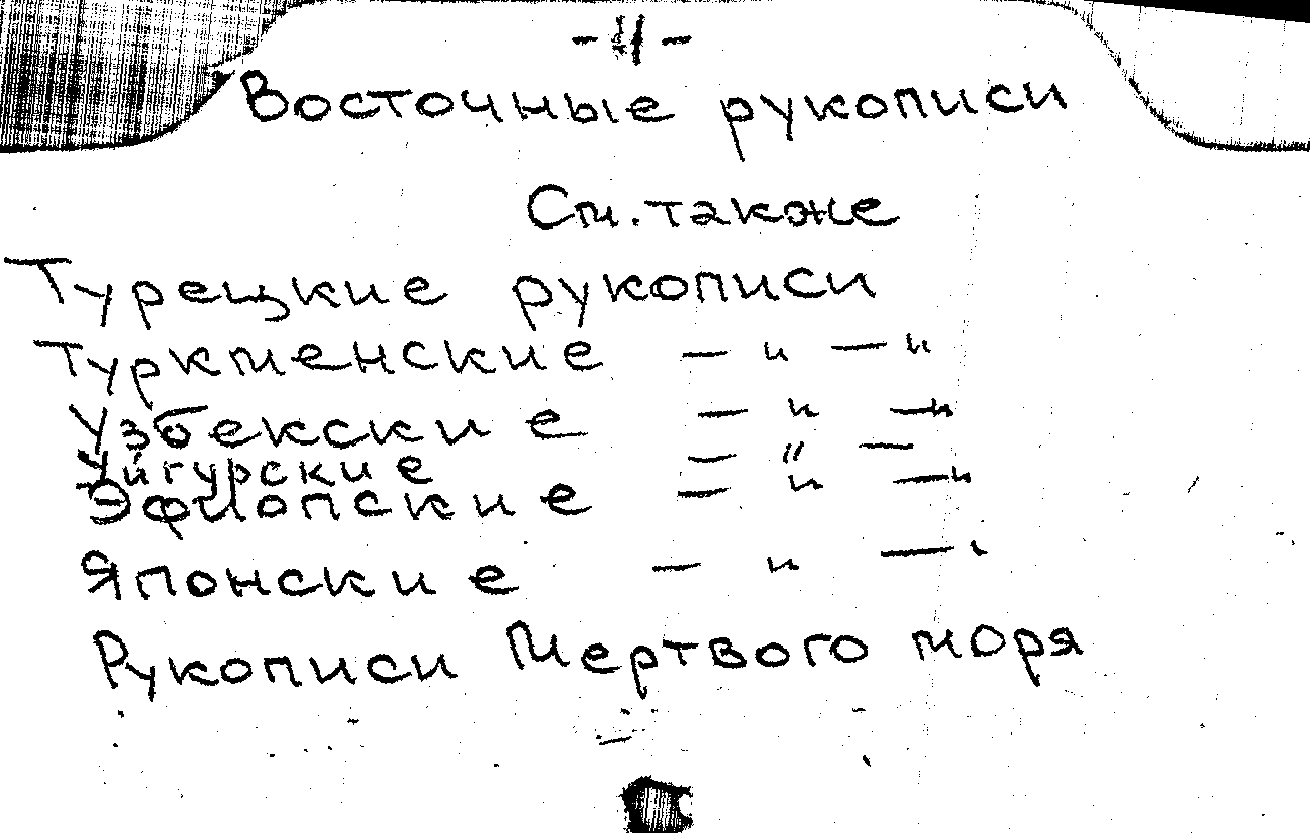 - 4 -
Восточные рукописи
См. также
Турецкие рукописи
Туркменские — и — и
Узбекские — и — и
Уйгурские — " —
Эфиопские — и — и
Японские — и — и
Рукописи Мертвого моря